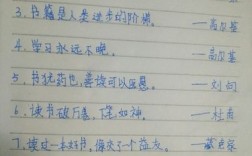 3、书籍是人类进步的阶梯。 ——高尔基
4、学习永远不晚。 ——高尔基
5、书犹药也,善读可以医愚。 ——刘向
6、读书破万卷,下笔如神。 ——杜甫
7、读过一本好书,像交了一个益友。 ——臧克家